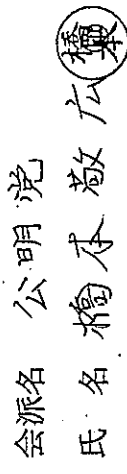 会派名 公明党
氏名 橋本敬広 橋本